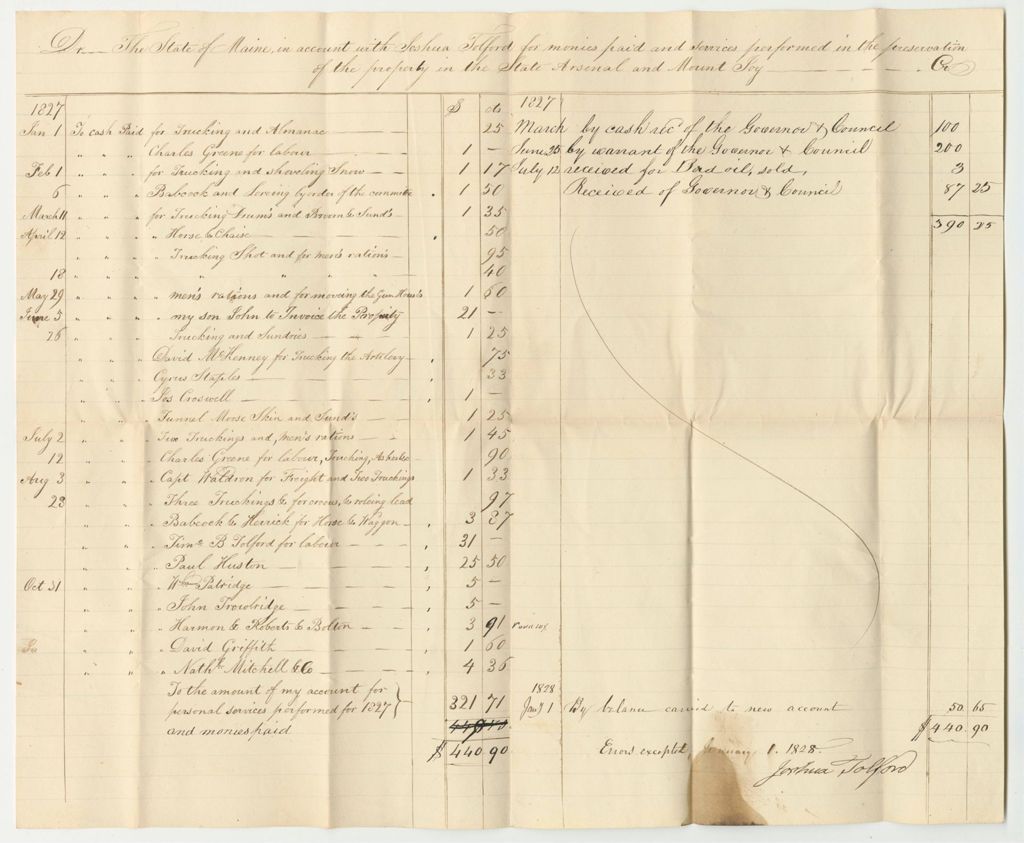 Dr. The State of Maine, in account with Joshua Tolford for monies paid and services performed in the preservation
of the property in the State Arsenal and Mount Joy Cr
1827 $ cts
Jan 1 To cash Paid for Trucking and Almanac 25
" " " Charles Greene for labour 1 –
Feb 1 " " for Trucking and shoveling Snow 1 17
6 " " " Babcock and by order of the committee 1 50
March 11 " " for Trucking Drum's and Broom & Sund's 1 35
April 12 " " " Horse & Chaise 50
" " " Trucking Shot and for men's rations 95
18 " " " " " " " 40
May 29 " " " men's rations and for moving the Gun Houses 1 60
June 5 " " " my son John to Invoice the Property 21 –
26 " " " Trucking and Sundries 1 25
" " " David McKenney for Trucking the Artillery 75
" " " Cyrus Staples 33
" " " Jos Croswell 1 –
" " " Tunnel Moose Skin and Sund's 1 25
July 2 " " " Five Truckings and men's rations 1 45
12 " " " Charles Greene for labour, Trucking, 90
Aug 3 " " " Capt Waldron for Freight and Two Truckings 1 33
28 " " " Three Truckings & for & lead 97
" " " Babcock & Herrick for Horse & Waggon 3 37
" " " Tim B Tolford for labour 31 –
" " " Paul Huston 25 50
Oct 31 " " " Wm Patridge 5 –
" " " John Trowbridge 5 –
" " " Harmon & Roberts & Bolton 3 91
Do " " " David Griffith 1 60
" " " Nathl Mitchell & Co 4 36
To the amount of my account for
personal services performed for 1827 321 71
and monies paid
$ 440 90
1827
March by cash rec'd of the Governor & Council 100
June 25 by warrant of the Governor & Council 200
July 12 received for Bad oil, sold, 3
Received of Governor & Council 87 25
390 25
1828
Jany 1 By balance carried to new account 50 65
$ 440 90
Errors excepted, January 1. 1828
Joshua Tolford